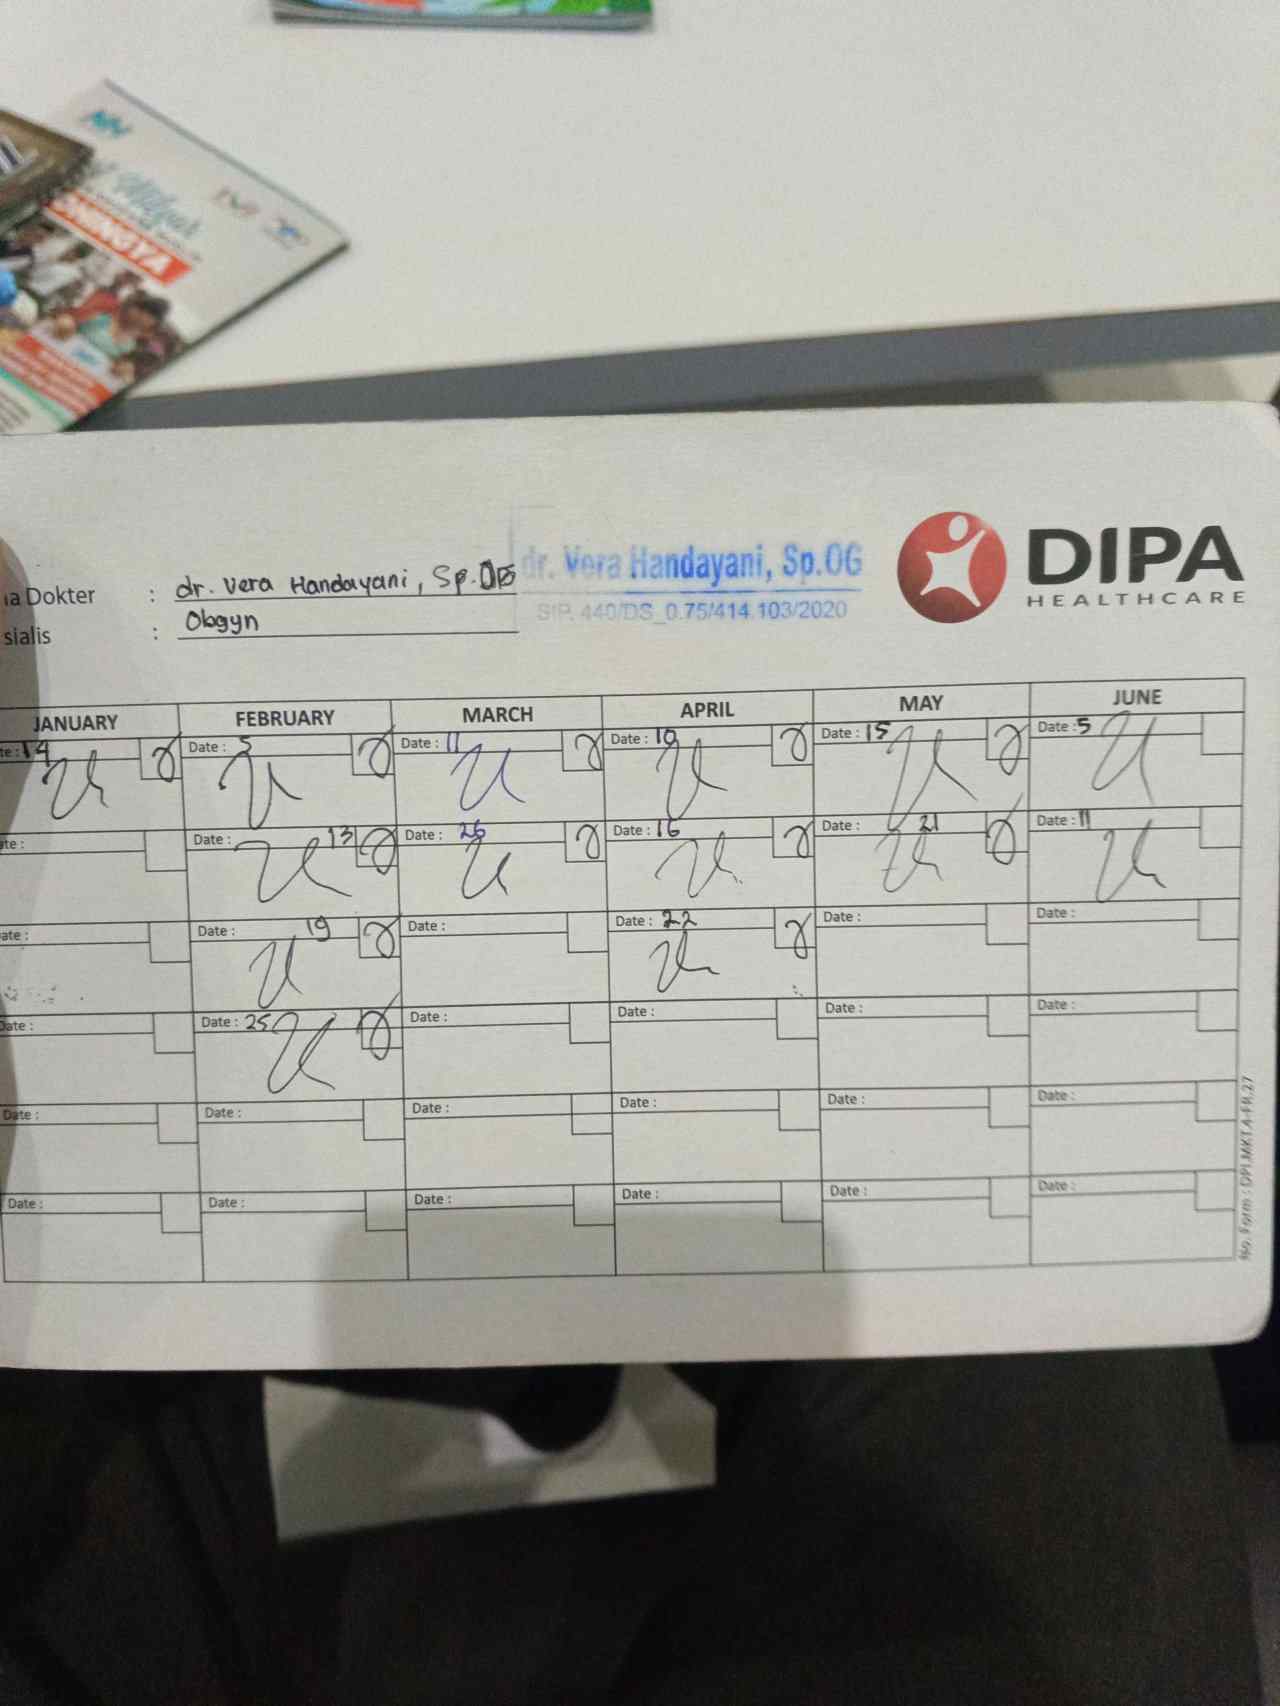 DIPA
HEALTHCARE
a Dokter : dr. Vera Handayani, Sp.OG
dr. Vera Handayani, Sp.OG
SIP. 440/DS_0.75/414.103/2020
sialis : Obgyn
JANUARY FEBRUARY MARCH APRIL MAY JUNE
te : 14 Date : 5 Date : 11 Date : 10 Date : 15 Date : 5
te : Date : 13 Date : 26 Date : 16 Date : 21 Date : 11
ate : Date : 19 Date : Date : 22 Date : Date :
Date : Date : 25 Date : Date : Date : Date :
Date : Date : Date : Date : Date : Date :
Date : Date : Date : Date : Date : Date :